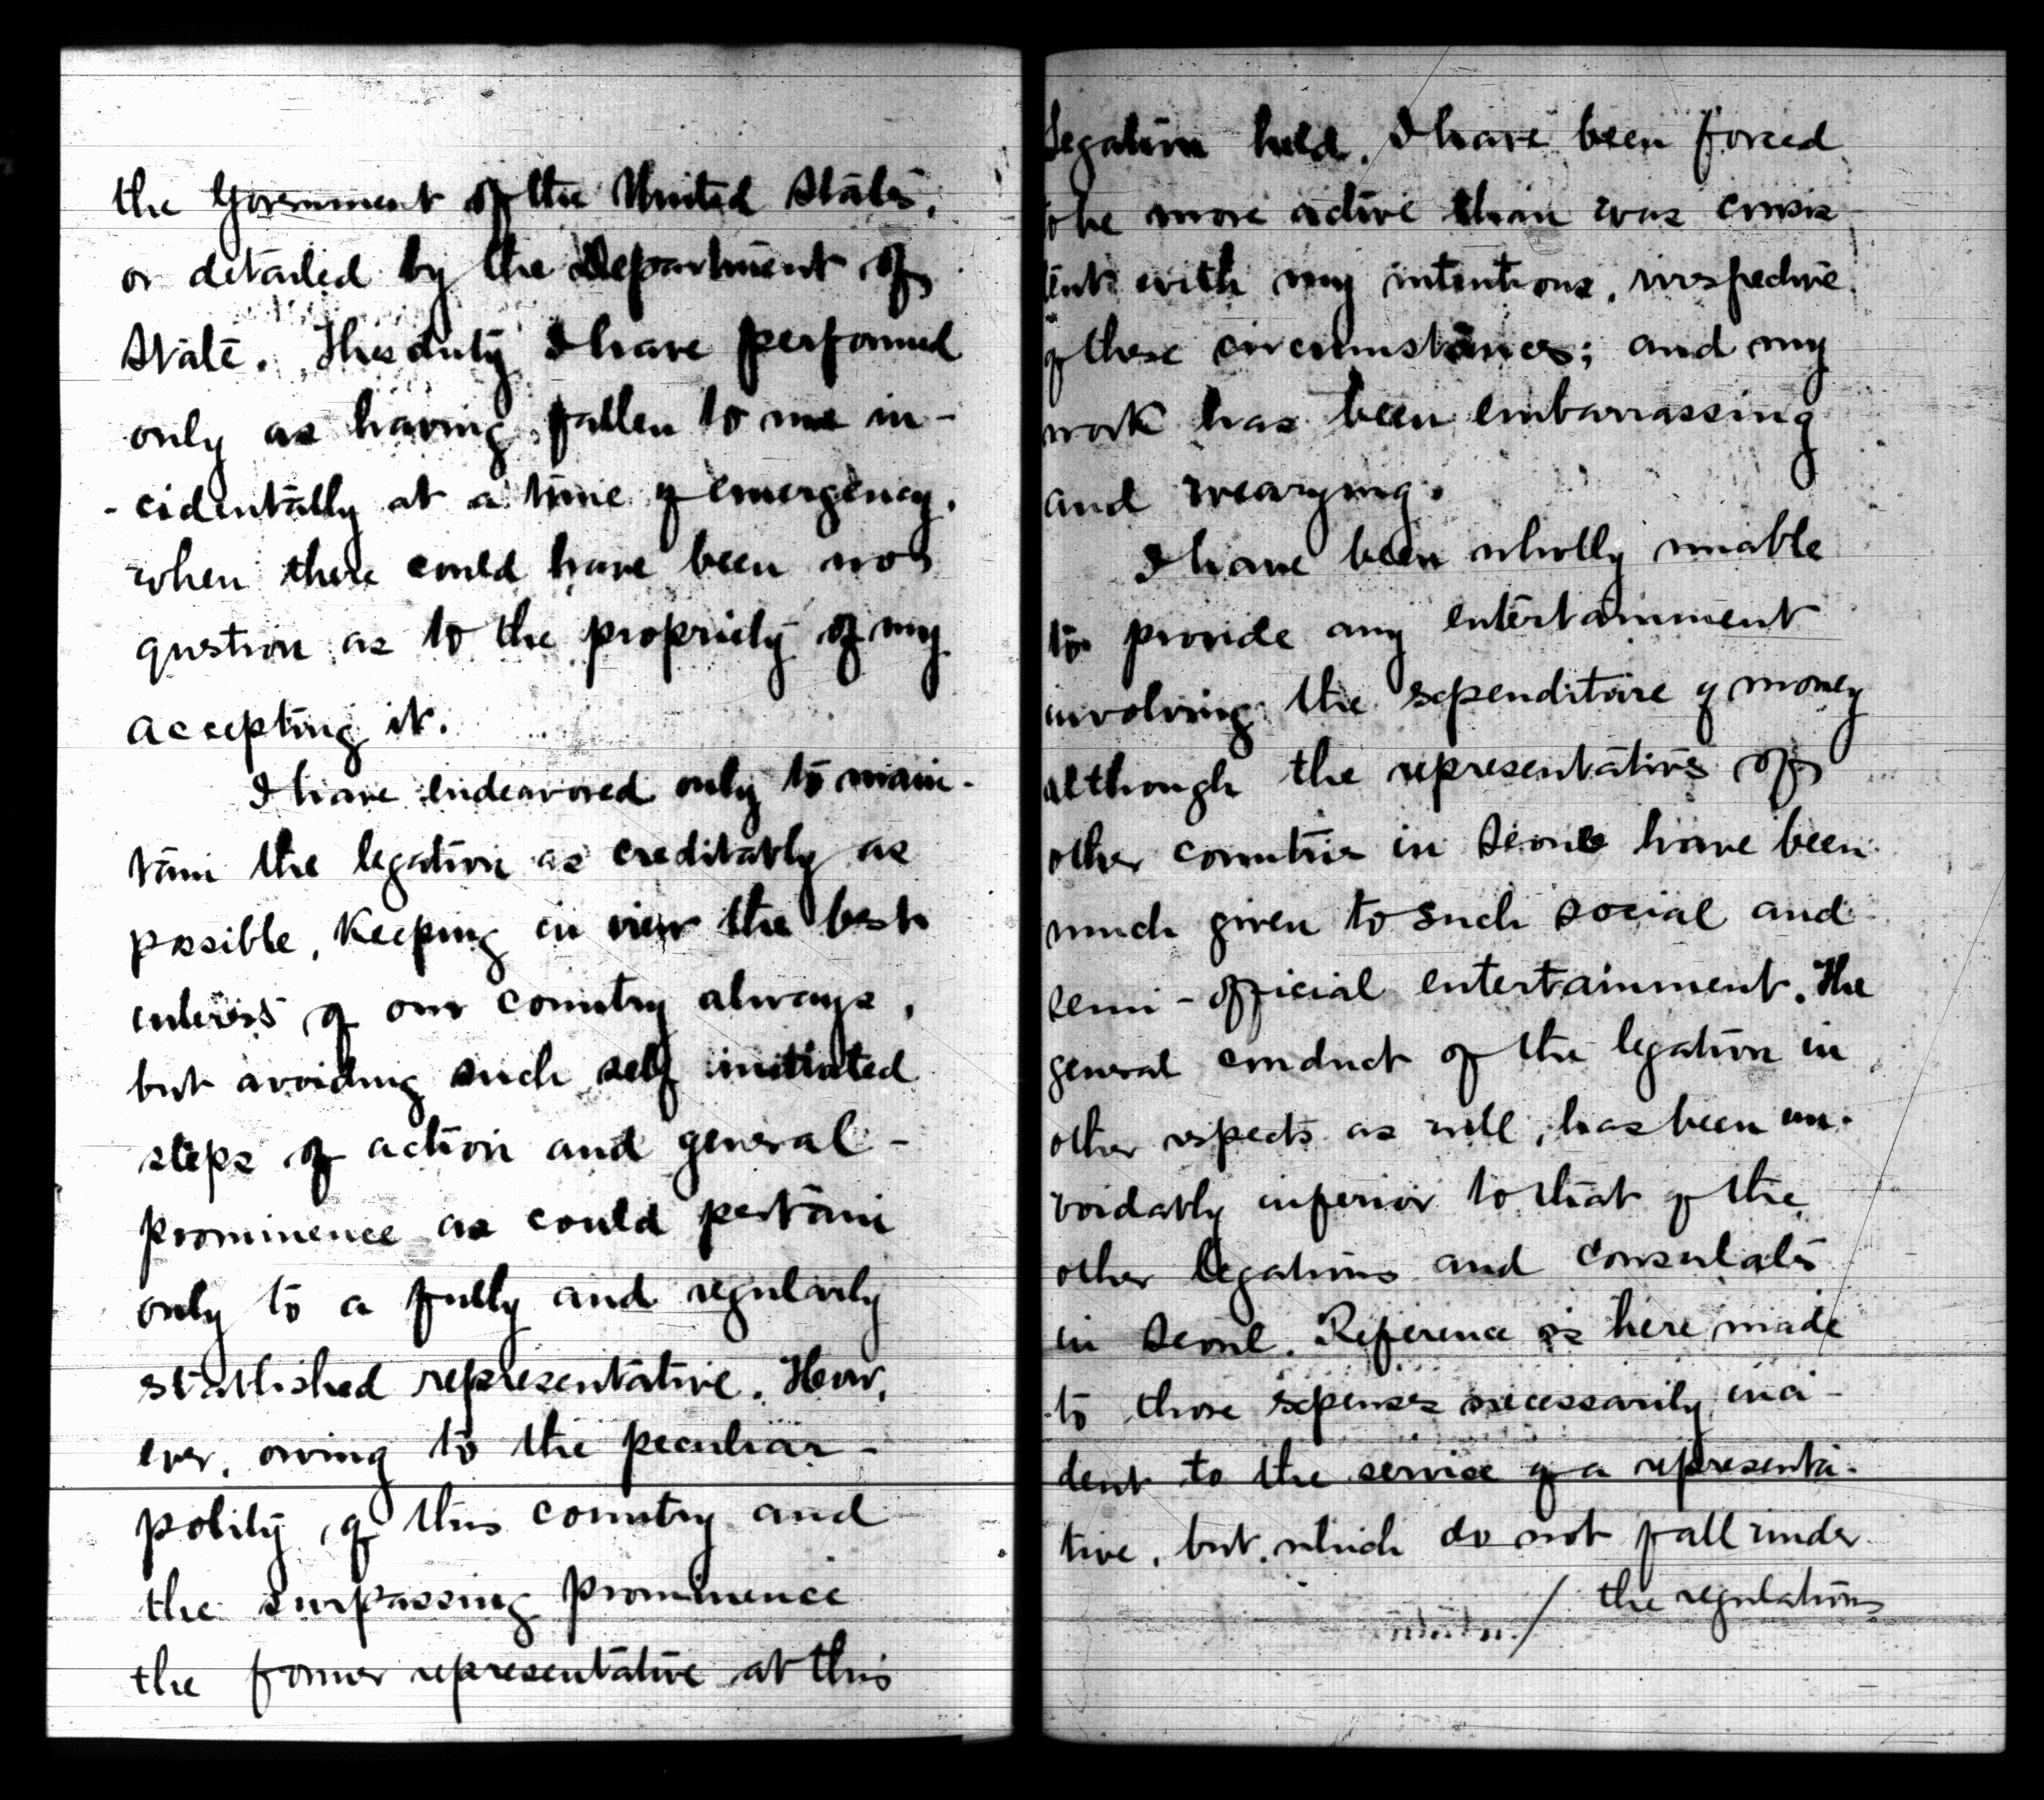 the Government of the United States,
or detailed by the Department of
State. This duty I have performed
only as having fallen to me in-
-cidentally at a time of emergency,
when there could have been no
question as to the propriety of my
accepting it.
I have endeavored only to main-
tain the legation as creditably as
possible, keeping in view the best
interests of our country always,
but avoiding such self initiated
steps of action and general-
prominence as could pertain
only to a fully and regularly
established representative. How,
ever, owing to the peculiar-
polity of this country and
the surpassing prominence
the former representative at this
legation held, I have been forced
to be more active than was consis
tent with my intentions, irrespective
of these circumstances; and my
work has been embarrassing
and wearying.
I have been wholly unable
to provide any entertainment
involving the expenditure of money
although the representatives of
other countries in Seoul have been
much given to such social and
semi-official entertainment. The
general conduct of the legation in
other respects as well, has been una-
voidably inferior to that of the
other legations and consulates
in Seoul. Reference is here made
to those expenses necessarily inci-
dent to the service of a representa-
tive, but which do not fall under
/ the regulations